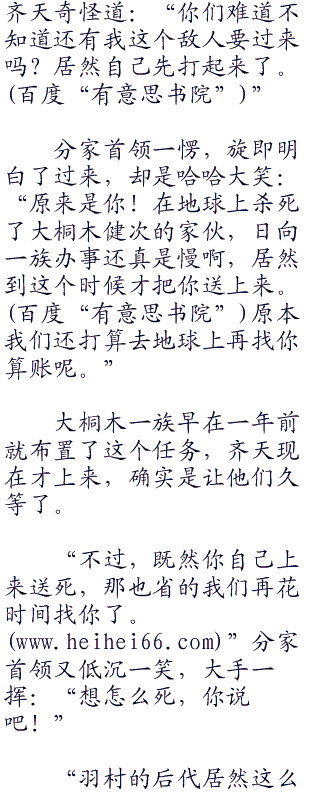 齐天奇怪道：“你们难道不
知道还有我这个敌人要过来
吗？居然自己先打起来了。
(百度“有意思书院”)”
分家首领一愣，旋即明
白了过来，却是哈哈大笑：
“原来是你！在地球上杀死
了大桐木健次的家伙，日向
一族办事还真是慢啊，居然
到这个时候才把你送上来。
(百度“有意思书院”)原本
我们还打算去地球上再找你
算账呢。”
大桐木一族早在一年前
就布置了这个任务，齐天现
在才上来，确实是让他们久
等了。
“不过，既然你自己上
来送死，那也省的我们再花
时间找你了。
(www.heihei66.com)”分家
首领又低沉一笑，大手一
挥：“想怎么死，你说
吧！”
“羽村的后代居然这么